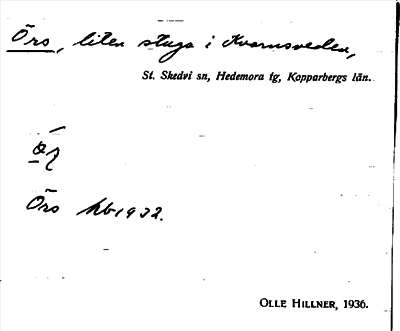 Örs, liten stuga i Kvarnsveden,
St. Skedvi sn, Hedemora tg, Kopparbergs län.
Örs kb 1932.
OLLE HILLNER, 1936.